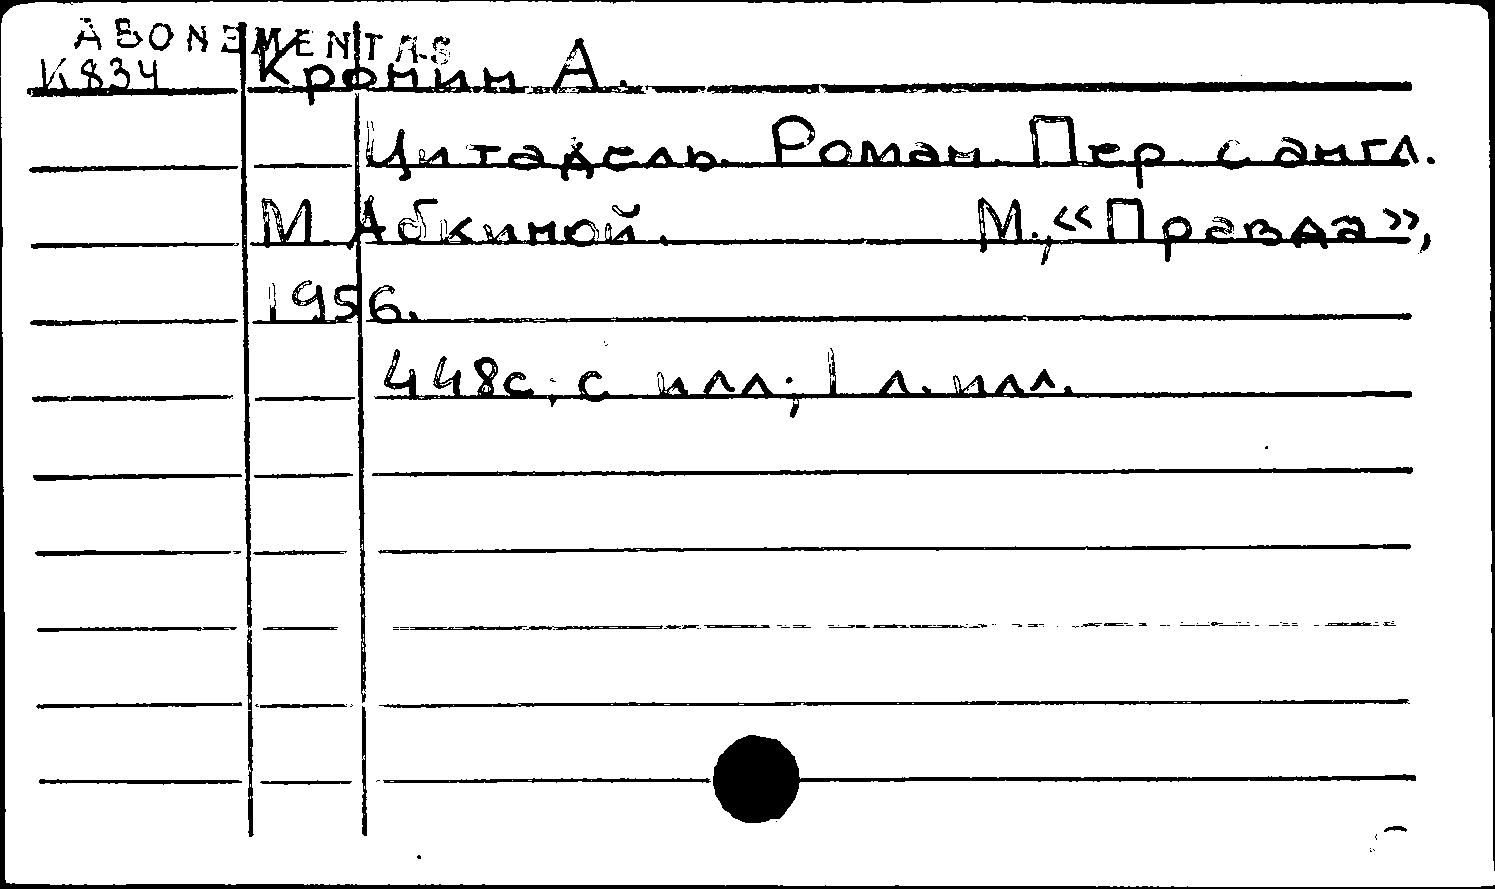 ABONEMENTAS
К834 Кронин А.
Цитадель. Роман. Пер. с англ.
М. Абкиной. М., «Правда»,
1956.
448с.; с илл.; 1 л. илл.